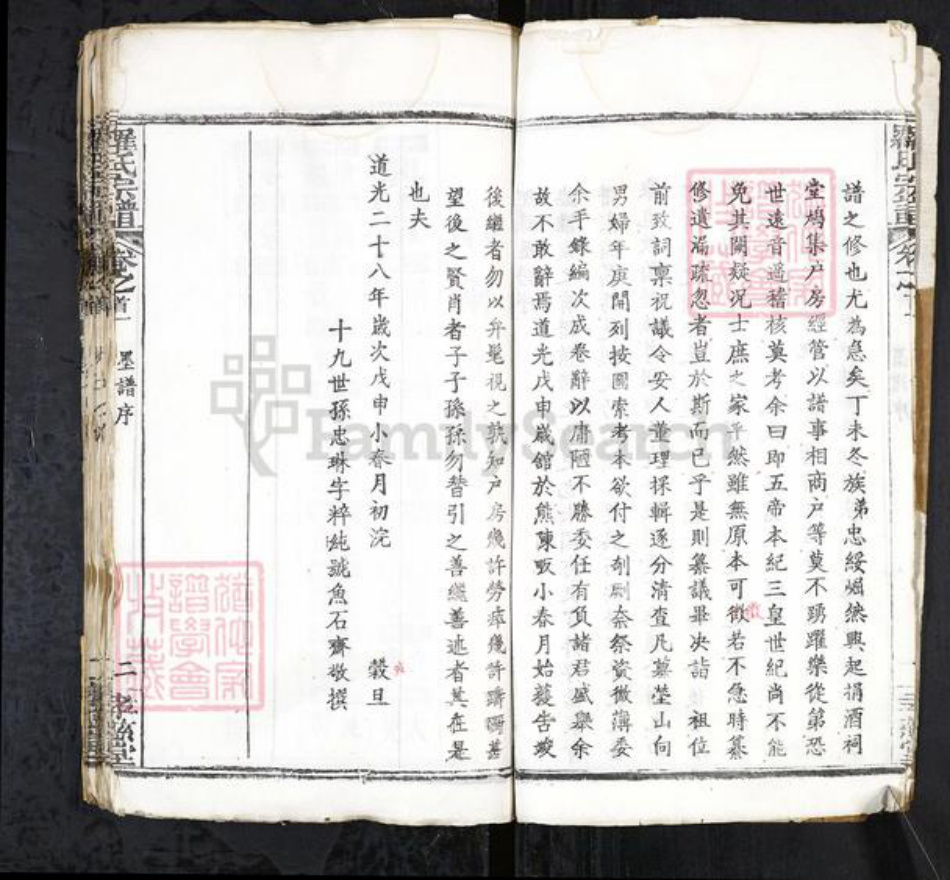 譜之修也尤為急矣丁未冬族弟忠綏崛然興起捐酒祠
堂鳩集戶房經管以譜事相商戶等莫不踴躍樂從第恐
世遠音遥稽核莫考余曰即五帝本紀三皇世紀尚不能
免其闕疑況士庶之家乎然雖無原本可徵若不急時纂
修遺漏疏忽者豈於斯而已乎是則纂議畢決詣 祖位
前致詞禀祝議令妥人董理採輯逐分清查凡墓塋山向
男婦年庚開列按圖索考本欲付之剞劂奈祭資微薄委
余手錄編次成卷辭以庸陋不勝委任有負諸君盛舉余
故不敢辭焉道光戊申歲館於熊陳畈小春月始襲告竣
後繼者勿以弁髦視之孰知戶房幾許勞瘁幾許躊躇甚
望後之賢肖者子子孫孫勿替引之善繼善述者其在是
也夫
道光二十八年歲次戊申小春月初浣 穀旦
十九世孫忠琳字粹純號魚石齋敬撰
羅氏宗譜 卷之首 墨譜序 二
FamilySearch